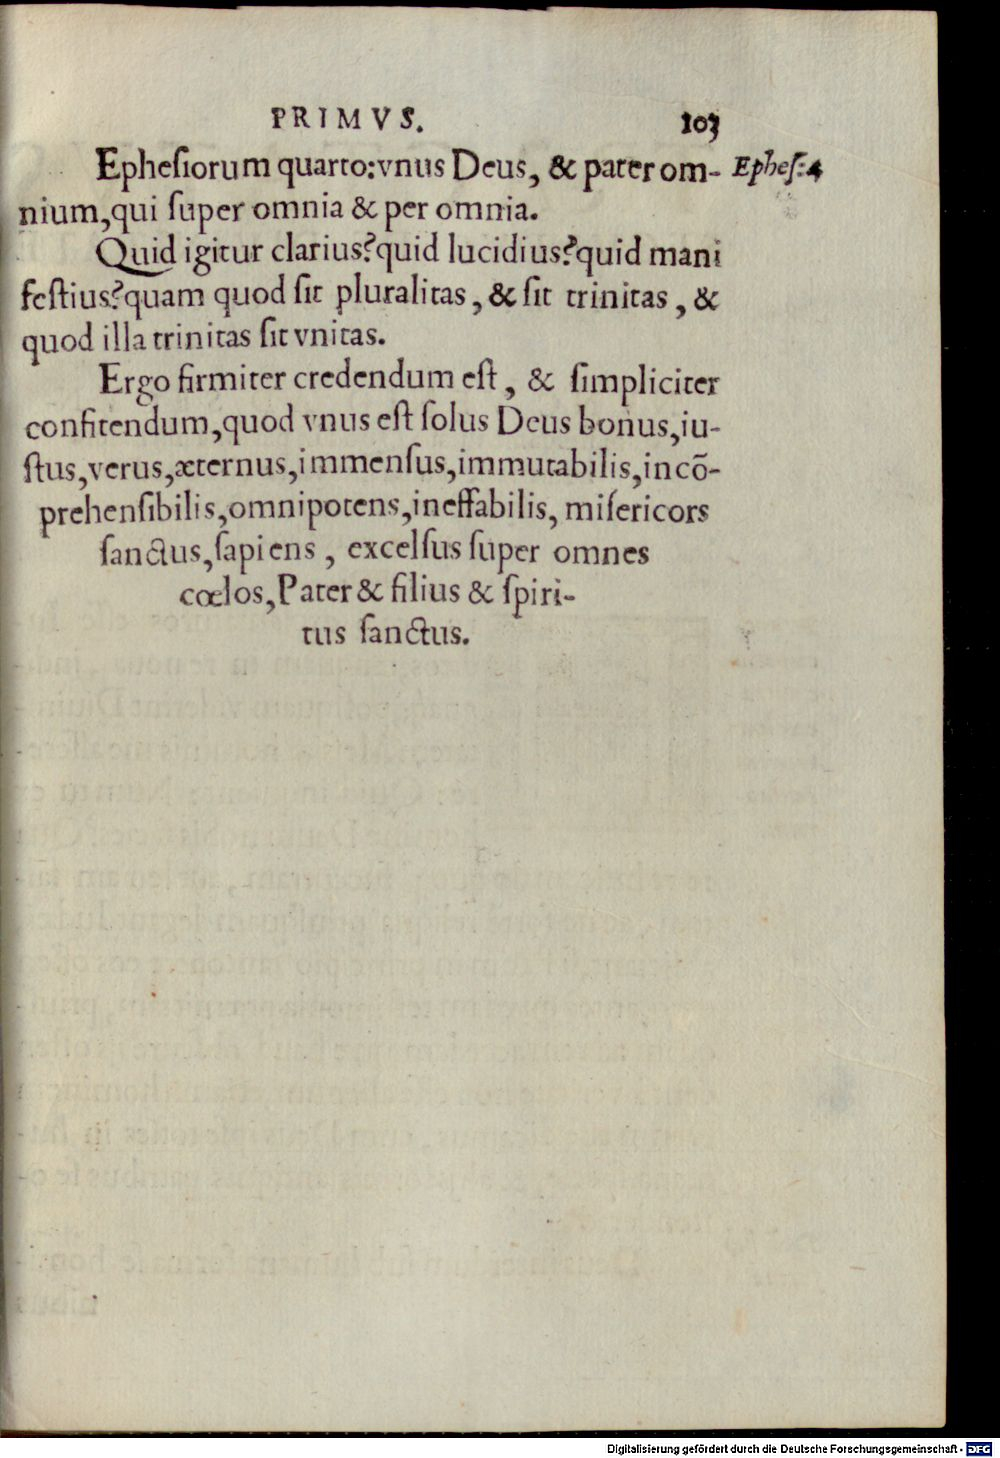 PRIMVS. 103
Ephesiorum quarto:vnus Deus, & pater om- Ephes:4
nium,qui super omnia & per omnia.
Quid igitur clarius?quid lucidius?quid mani
festius?quam quod sit pluralitas, & sit trinitas, &
quod illa trinitas sit vnitas.
Ergo firmiter credendum est, & simpliciter
confitendum,quod vnus est solus Deus bonus,iu-
stus,verus,æternus,immensus,immutabilis,incõ-
prehensibilis,omnipotens,ineffabilis, misericors
sanctus,sapiens, excelsus super omnes
cœlos,Pater & filius & spiri-
tus sanctus.
Digitalisierung gefördert durch die Deutsche Forschungsgemeinschaft - DFG